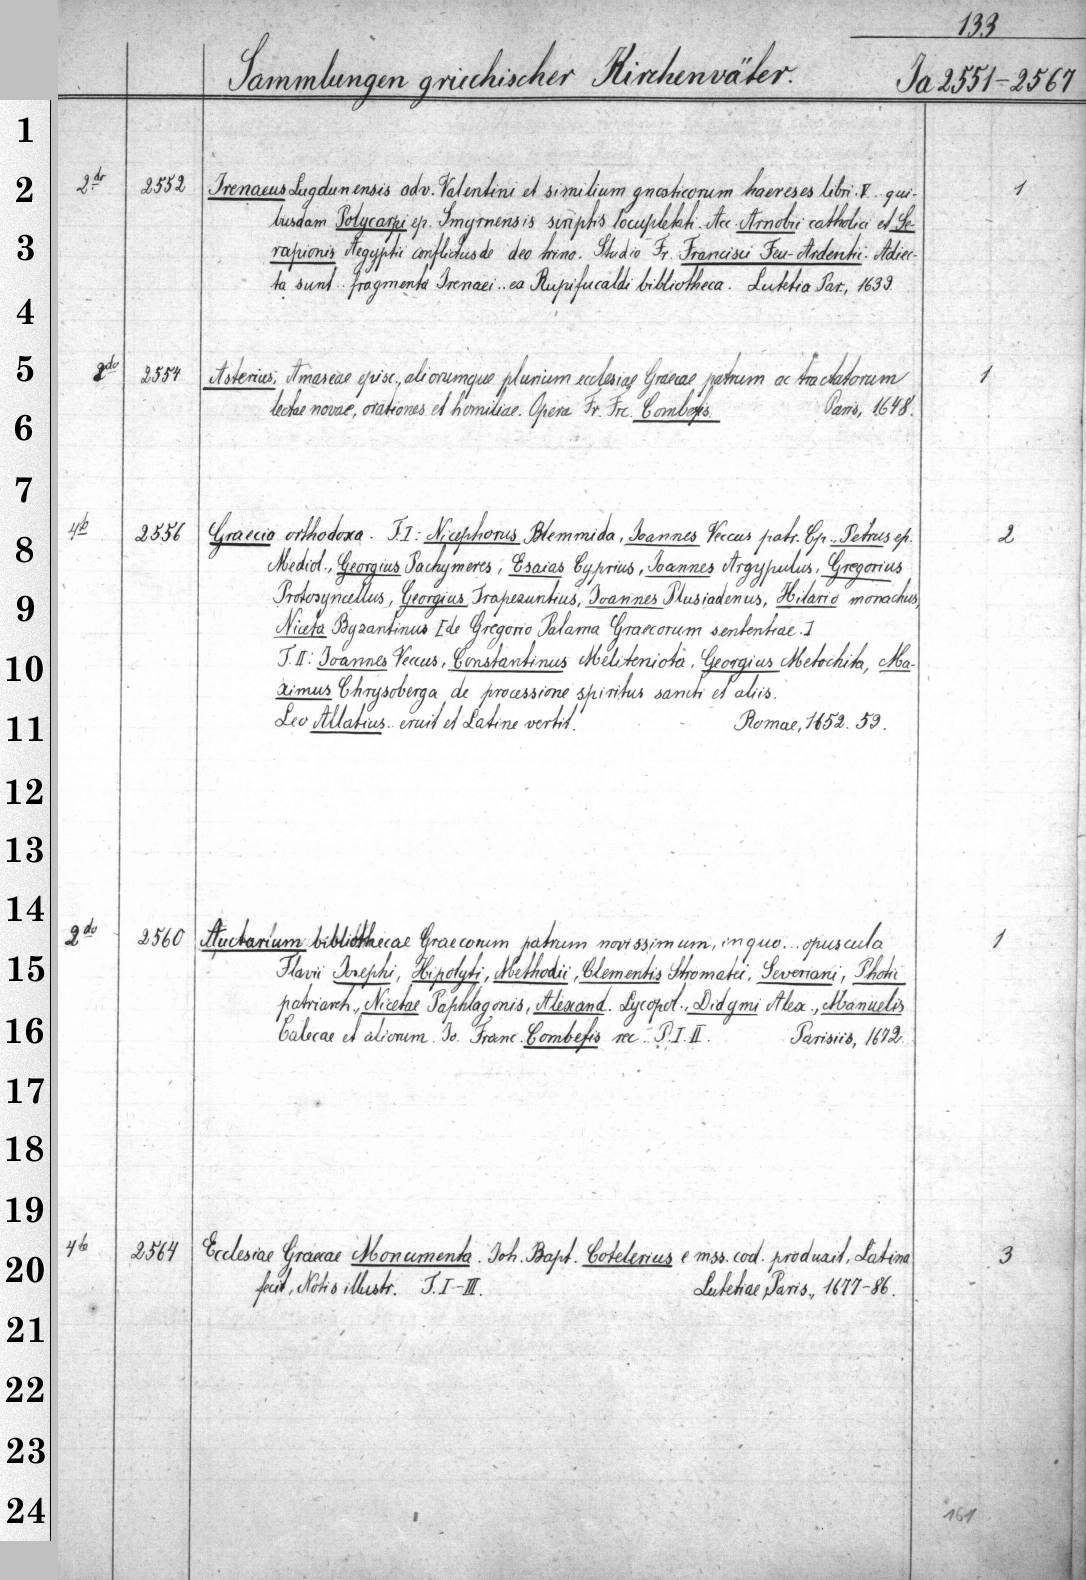 133
Sammlungen griechischer Kirchenväter. Ja 2551-2567
1
2
3
4
5
6
7
8
9
10
11
12
13
14
15
16
17
18
19
20
21
22
23
24
2do 2552 Irenaeus Lugdunensis adv. Valentini et similium gnosticorum haereses libri V .. qui- 1
busdam Polycarpi ep. Smyrnensis scriptis locupletati. Acc. Arnobii catholici et Se-
rapionis Aegyptii conflictus de deo trino. Studio Fr. Francisci Feu-Ardentii. Adiec-
ta sunt .. fragmenta Irenaei .. ea Rupifucaldi bibliotheca. Lutetia Par., 1639.
2do 2554 Asterius, Amaseae episc., aliorumque plurium ecclesiae Graecae patrum ac tractatorum 1
lectae novae, orationes et homiliae. Opera Fr. Frc. Combefis. Paris, 1648.
4to 2556 Graecia orthodoxa. T.I: Nicephorus Blemmida, Joannes Veccus patr. Cp., Petrus ep. 2
Mediol., Georgius Pachymeres, Esaias Cyprius, Joannes Argypulus, Gregorius
Protosyncellus, Georgius Trapezuntius, Joannes Plusiadenus, Hilario monachus,
Niceta Byzantinus [de Gregorio Palama Graecorum sententiae.]
T.II: Joannes Veccus, Constantinus Meliteniota, Georgius Metochita, Ma-
ximus Chrysoberga de processione spiritus sancti et aliis.
Leo Allatius .. eruit et Latine vertit. Romae, 1652. 59.
2do 2560 Auctarium bibliothecae Graecorum patrum novissimum, in quo ... opuscula 1
Flavii Josephi, Hipolyti, Methodii, Clementis Stromatei, Severiani, Photii
patriarch., Nicetae Paphlagonis, Alexand. Lycopol., Didymi Alex., Manuelis
Calecae et aliorum. Jo. Franc. Combefis rec. P. I. II. Parisiis, 1672.
4to 2564 Ecclesiae Graecae Monumenta. Joh. Bapt. Cotelerius e mss. cod. produxit, Latina 3
fecit, Notis illustr. T. I-III. Lutetiae Paris., 1677-86.
161